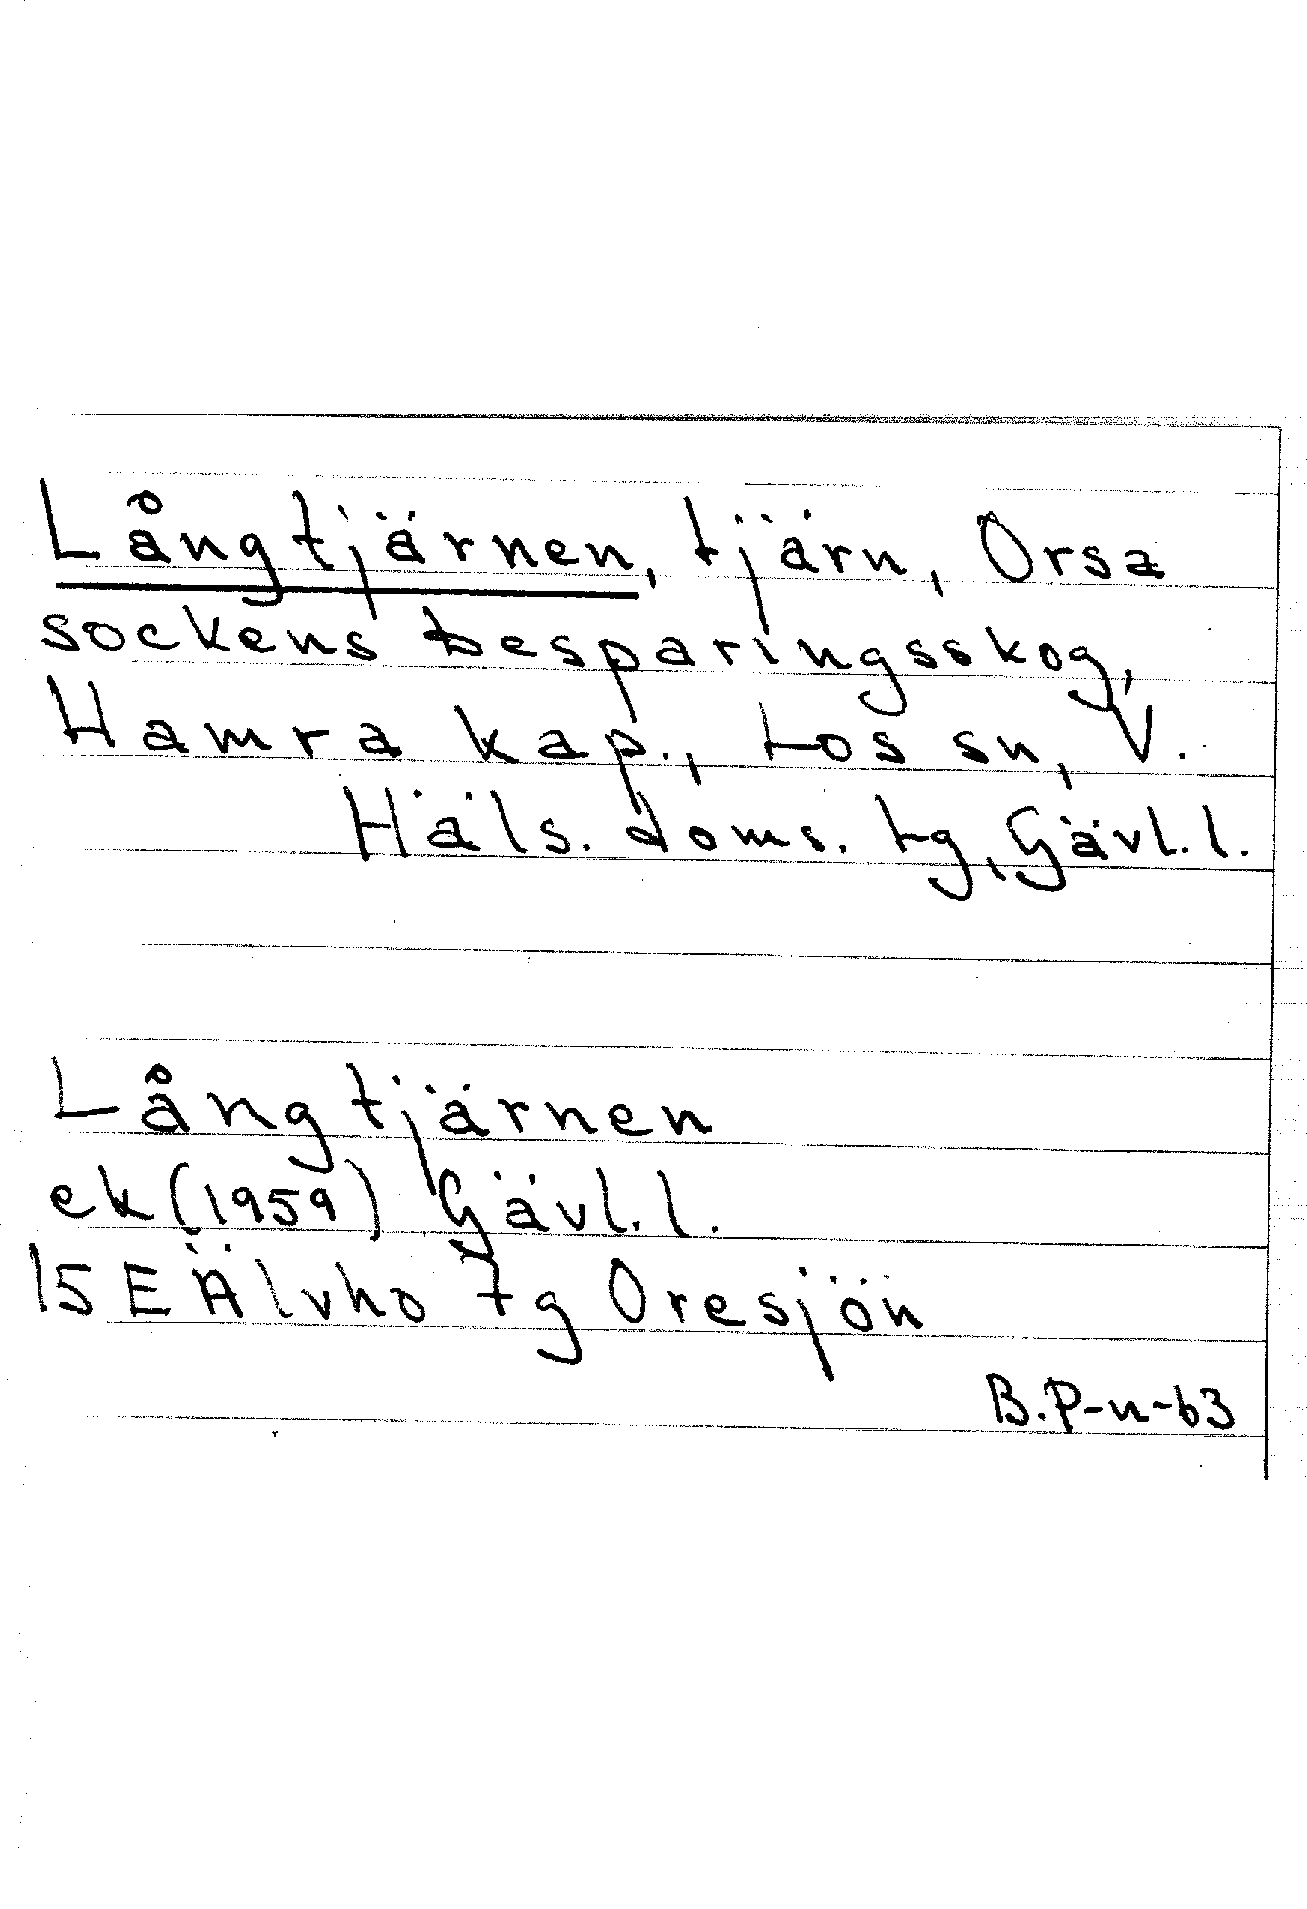 Långtjärnen, tjärn, Orsa
sockens besparingsskog,
Hamra kap., Los sn, V.
Häls. doms. tg, Gävl. l.
Långtjärnen
ek (1959) Gävl. l.
15 E Älvho 7g Oresjön
B.P-n-63